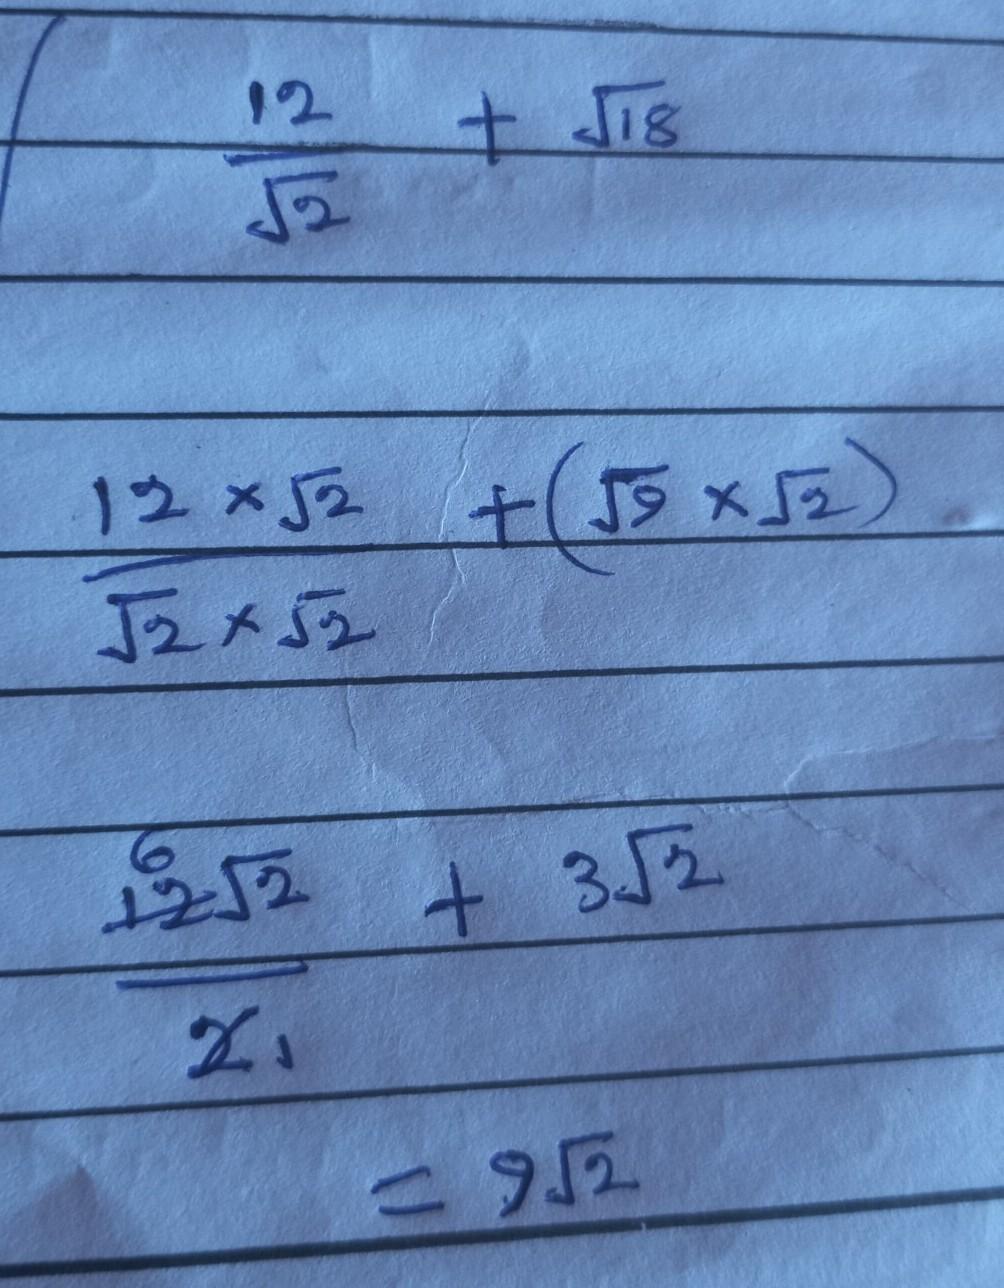 12/√2 + √18
12 × √2 / √2 × √2 + (√9 × √2)
6
12√2 / 2 1 + 3√2
= 9√2